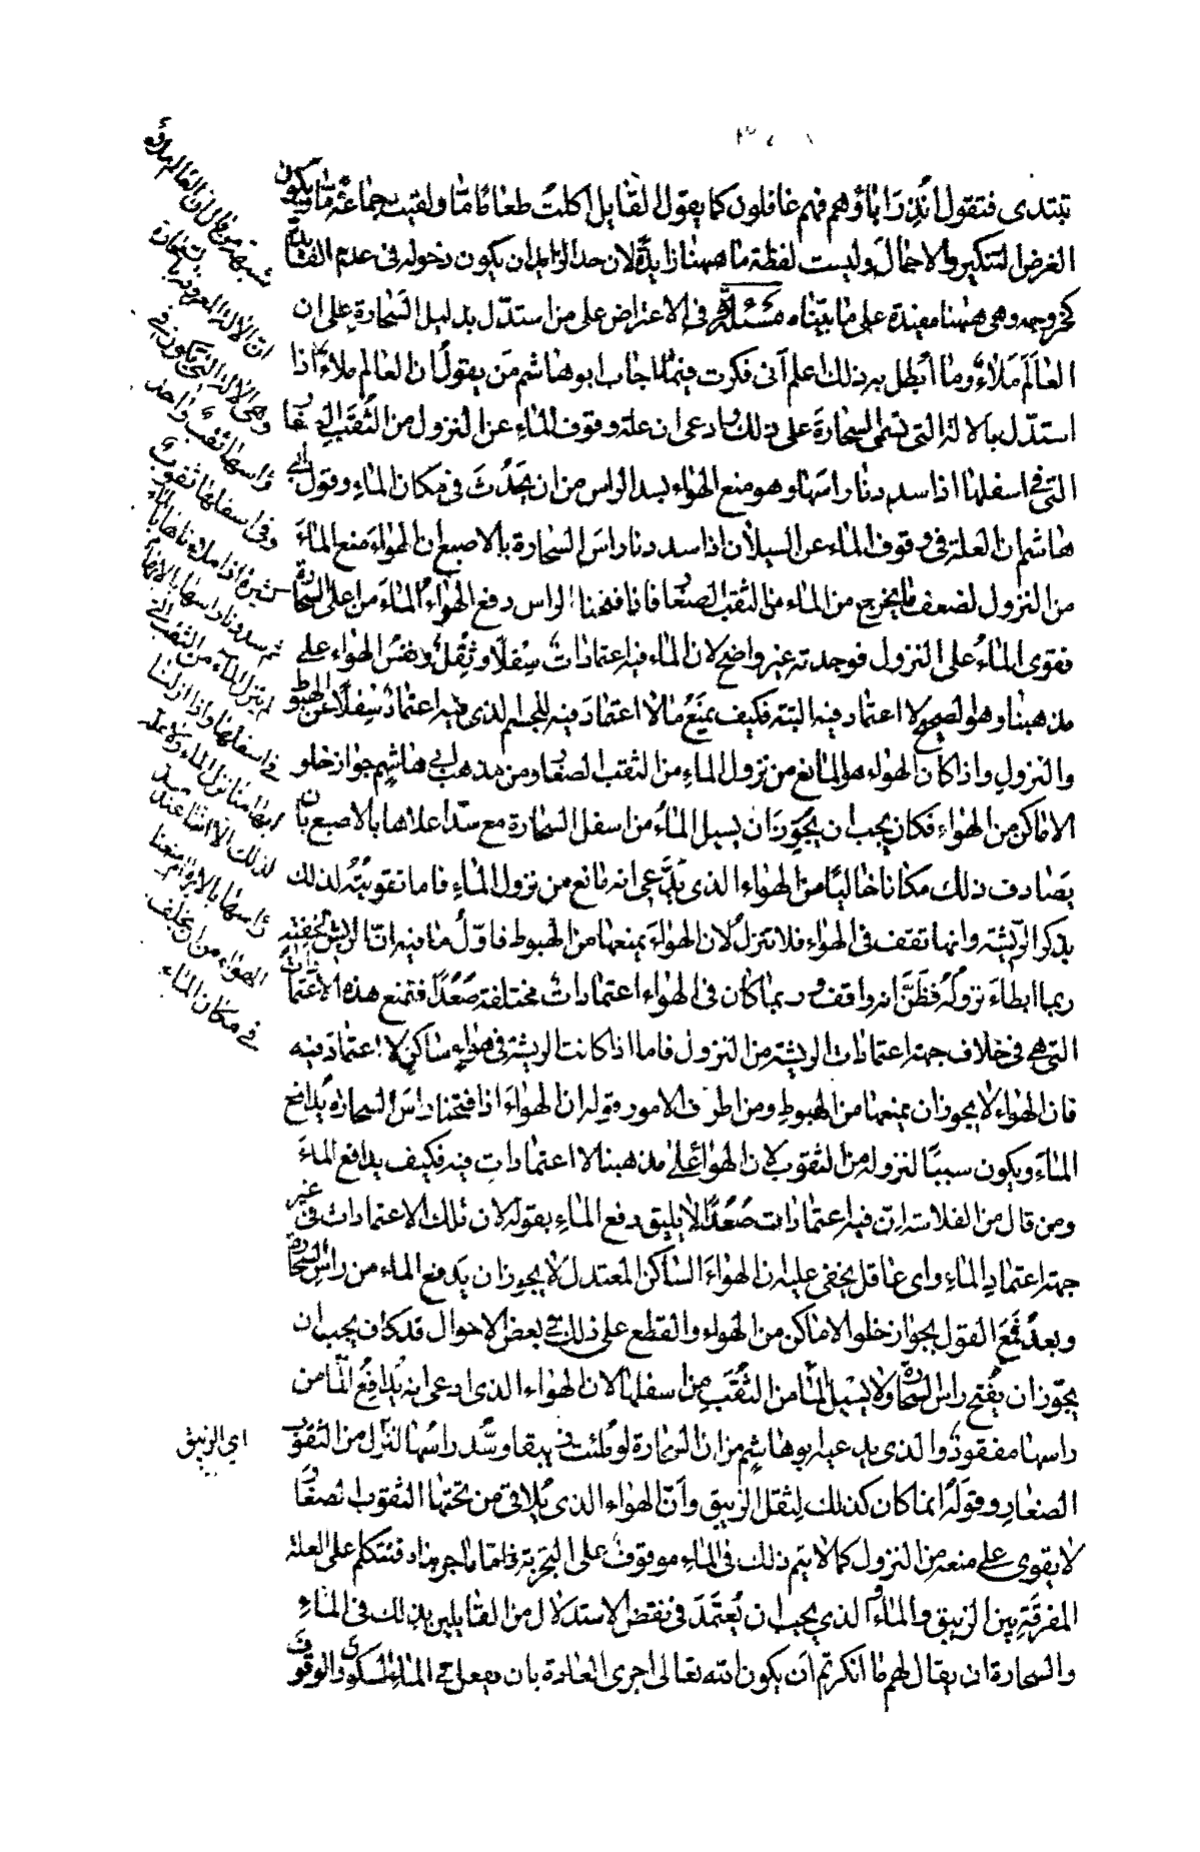 تبتدى فتقول انُذِرَ اٰبٰاؤهم فهم غافلون كما يقول القايل اكلتُ طعامًا مّا ولقيت جماعةً مّا ويكون
الغرض التنكير والاجمال وليست لفظة ما هيهنا زايدةً لان حد الزايد ان يكون دخوله فى عدم الفايدة
كخروجه وهى ههنا مفيدة على ما بيّناه مسئلة فى الاعتراض على من استدّل بدليل السَّحارةِ على ان
العالَمَ مَلاءٌ وما اُبطل به ذلك اعلم انى فكرت فيما اجاب ابو هاشم مَن يقول ان العالم ملاء اذا
استدّل بالالة التى تسمى السحارةَ على ذلك وادعى ان علة وقوف الماءِ عن النزول من الثُقَب الصغار
التى فى اسفلها اذا سددنا راسَها وهو منع الهواء بسد الراس من ان يَحدُثَ فى مكان الماءِ وقول ابى
هاشم ان العلة فى وقوف الماء عن السيلان اذا سددنا راسَ السحارة بالاصبع ان الهواءَ منع الماءَ
من النزول لضعف ما يخرج من الماء من الثقب الصغار فاذا فتحنا الراس دفع الهواءُ الماءَ من اعلى السحارة
فقوى الماءُ على النزول فوجدته غير واضح لان الماء فيه اعتماداتٌ سِفلًا وثِقْلٌ ونفسُ الهواء على
مذهبنا وهو الصحيح لا اعتماد فيه البتة فكيف يمنَعُ ما لا اعتمادَ فيه للجسم الذى فيه اعتمادٌ سِفلًا عن الهبوط
والنزولِ واذا كان الهواء هو المانع من نزول الماءِ من الثقب الصغار ومن مذهب ابى هاشِمٍ جواز خلو
الاماكن من الهواءِ فكان يجب ان يجوّزَ ان يسيل الماءُ من اسفل السحارة مع سدّ اعلاها بالاصبع بان
يصادف ذلك مكانا خاليًا من الهواء الذى يدَّعى انه مانع من نزول الماءِ فاما تقويتُه لذلك
بذكر الريشة وانها تقف فى الهواء فلا تنزلُ لان الهواءَ يمنعها من الهبوط فاوّلُ ما فيه انّا الريش لخفته
ربما ابطاءَ نزولُهُ فظَنَّ انه واقف وربما كان فى الهواء اعتماداتٌ مختلفة صَعُدًا فتمنع هذه الاعتمادات
التى هى فى خلاف جهة اعتمادات الريشة من النزول فاما اذا كانت الريشة فى هواءٍ ساكنٍ لا اعتمادَ فيه
فان الهواء لا يجوز ان يمنعها من الهبوطِ ومن اطرف الامور قوله ان الهواءَ اذا فتحنا راسَ السحارة يُدافع
الماءَ ويكون سببًا لنزوله من الثقوب لان الهواء على مذهبنا لا اعتماداتِ فيه فكيف يدافع الماءَ
ومن قال من الفلاسفة ان فيه اعتمادات صُعُدًا لا يليق دفع الماءِ بقوله لان تلك الاعتمادات فى غير
جهة اعتمادِ الماءِ واى عاقل يخفى عليه ان الهواءَ الساكن المعتدل لا يجوز ان يدفع الماء من رأس السحارة
وبعدُ فمع القول بجواز خلو الاماكن من الهواء والقطع على ذلك فى بعض الاحوال قد كان يجب ان
يجوّز ان يُفتح راس السحارة ولا يسيل الماءُ من الثُقَب مِن اسفلها لان الهواء الذى ادعى انه يُدافِعُ الماءَ من
راسها مفقودٌ والذى يدعيه ابو هاشِمٍ من ان السحارة لو مُلئت زيبقا وسُّد راسُها لنزل من الثقوب
الصغار وقولُهُ انما كان كذلك لِثقل الزيبق وأنّ الهواء الذى يُلاقى من تحتها الثقوب الصغار
لا يقوى على منعه من النزول كما لا يتم ذلك فى الماءِ موقوفٌ على التجربة فاما ما جربناه فنتكلم على العلة
المفرقَةِ بين الزيبق والماءِ والذى يجب ان يُعتَمَدَ فى نقض الاستدلال من القايلين بذلك فى الماءِ
والسحارة ان يقال لهم ما انكرتم اَن يكون الله تعالى اجرى العادة بان يفعل فى الماءِ السكون والوقوفَ
شبهة من قال ان العالم ملاءٌ
ان الالة المعروفة بالسحارة
وهى الالة التى تكون فى
راسها ثقبٌ واحد
وفى اسفلها ثقوبٌ
كثيرة اذا ملاناها ماء
ثم سددنا راسها بالابهام
لم ينزل الماء من الثقب التى
فى اسفلها واذا ازلنا
ابهامنا نزل الماء ولا علة
لذلك الا اننا عند سد
راسها بالابهام منعنا
الهواء من ان يخلف
فى مكان الماء
اى الزيبق